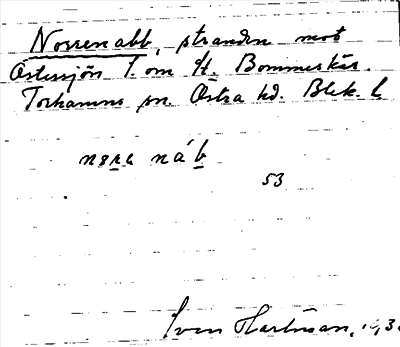 Norrenabb, stranden mot
Östersjön T. om St. Bommerskär.
Torhamns sn. Östra hd. Blek. l
nɞra náb
53
Sven Hartman, 193